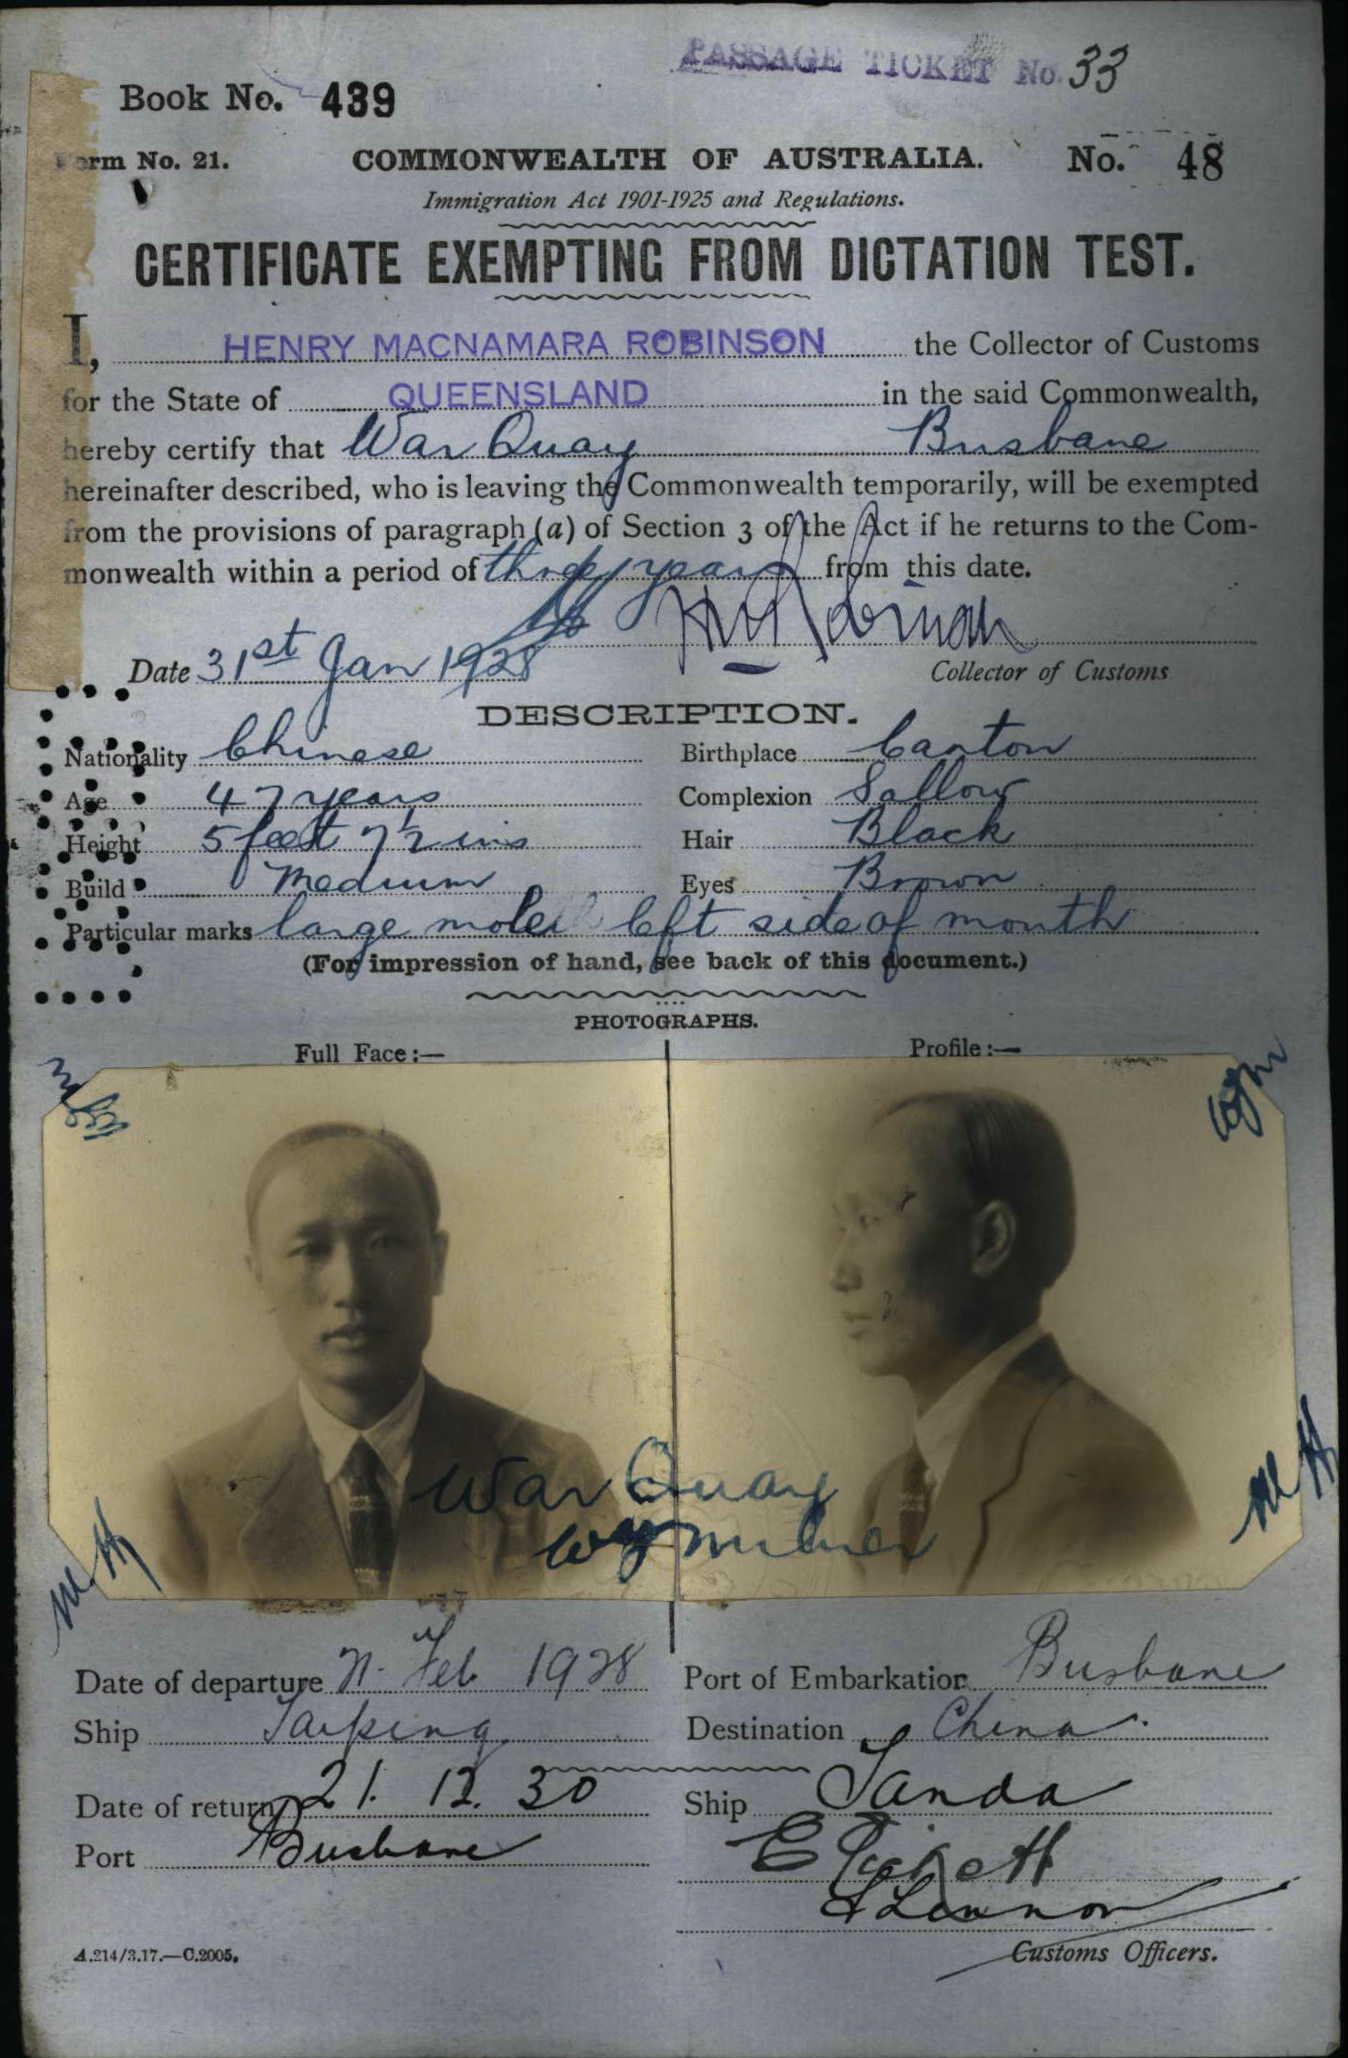 PASSAGE TICKET No. 33
Book No. 439
Form No. 21. COMMONWEALTH OF AUSTRALIA. No. 48
Immigration Act 1901-1925 and Regulations.
CERTIFICATE EXEMPTING FROM DICTATION TEST.
I, HENRY MACNAMARA ROBINSON the Collector of Customs
for the State of QUEENSLAND in the said Commonwealth,
hereby certify that War Quay Brisbane
hereinafter described, who is leaving the Commonwealth temporarily, will be exempted
from the provisions of paragraph (a) of Section 3 of the Act if he returns to the Com-
monwealth within a period of three years from this date.
Date 31st Jan 1928
Collector of Customs
DESCRIPTION.
Nationality Chinese Birthplace Canton
Age 47 years Complexion Sallow
Height 5 feet 7½ ins Hair Black
Build Medium Eyes Brown
Particular marks large mole left side of mouth
(For impression of hand, see back of this document.)
PHOTOGRAPHS.
Full Face:— Profile:—
War Quay
Date of departure Feb 1928 Port of Embarkation Brisbane
Ship Taiping Destination China.
Date of return 21. 12. 30 Ship Tanda
Port Brisbane
Customs Officers.
A.214/3.17.—C.2005.